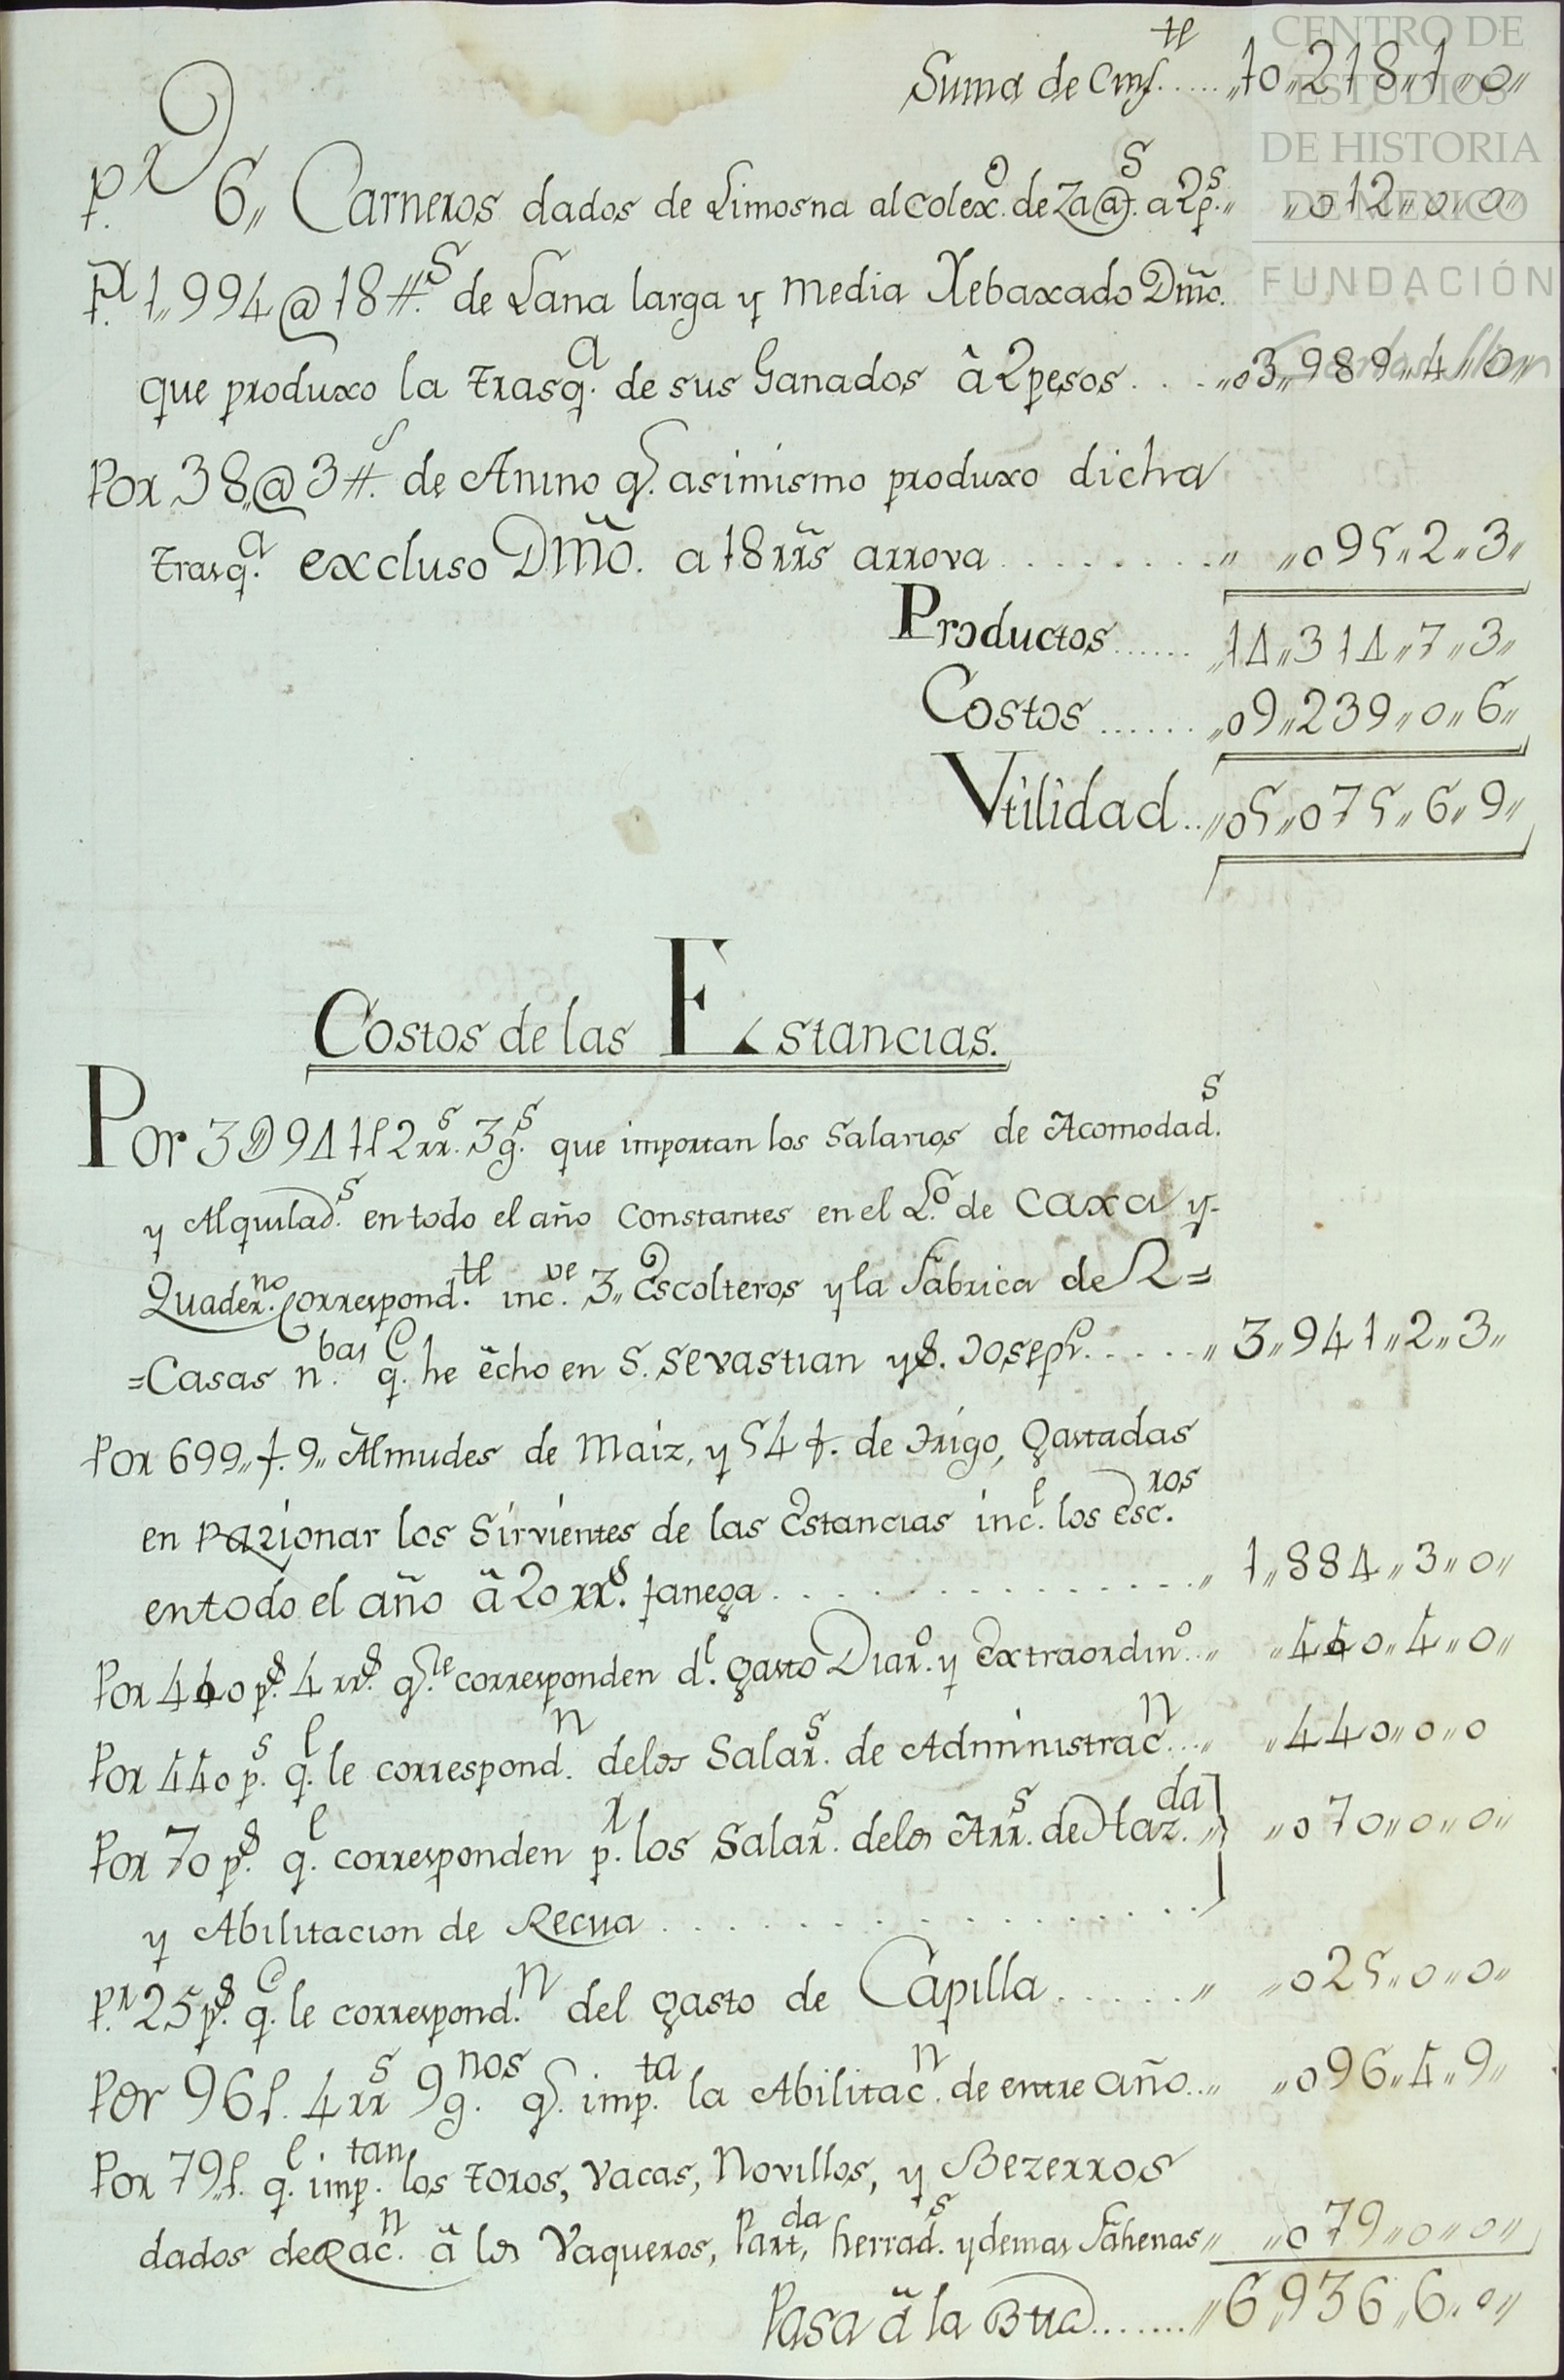 CENTRO DE
ESTUDIOS
DE HISTORIA
DE MEXICO
FUNDACIÓN
Carlos Slim
Suma de enf.te ..... „10„218„1„0„
p.r 6„ Carneros dados de Limosna al Colex.o de Za@t.s a 2p.s „ „012„0„0„
P.r 1„994@18#.s de Lana larga y media Rebaxado Dmo.
que produxo la trasq.a de sus Ganados â 2 pesos . . . „03„989„4„0„
Por 38„@3#.s de Anino q.e asimismo produxo dicha
trasq.a excluso Dmo. a 18 rrs arrova ......... „ „095„2„3„
Productos ...... „14„314„7„3„
Costos ...... „09„239„0„6„
Vtilidad .. „05„075„6„9„
Costos de las Estancias.
Por 3D941p 2rr.s 3g.s que importan los Salarios de Acomodad.s
y Alquilad.s en todo el año Constantes en el L.o de Caxa y
Quader.no Correspond.te inc.ve 3„ Escolteros y la Fabrica de 2=
=Casas n.bas q.e he echo en S. Sevastian y S. Joseph ..... „ 3„941„2„3„
Por 699„f. 9„ Almudes de Maiz, y 54 f. de Trigo, gastadas
en razionar los Sirvientes de las Estancias inc.e los Esc.ros
en todo el año â 20 rr.s fanega ............... „ 1„884„3„0„
Por 440 p.s 4 rr.s q.e le corresponden d.l gasto Diar.o y Extraordin.o .. „ „440„4„0„
Por 440 p.s q.e le correspond.n de los Salar.s de Administrac.n ... „ „440„0„0
Por 70 p.s q.e corresponden p.r los Salar.s de los Arr.s de Haz.da „ „070„0„0„
y Abilitacion de Recua ...............
P.r 25 p.s q.e le correspond.n del gasto de Capilla ..... „ „025„0„0„
Por 96p. 4 rrs 9g.nos q.e imp.ta la Abilitac.n de entre año .. „ „096„4„9„
Por 79„p. q.e imp.tan los toros, Vacas, Novillos, y Bezerros
dados de Rac.n â los Vaqueros, Part,da herrad.s y demas Fahenas „ „079„0„0„
Pasa â la Btta ....... „6„936„6„0„